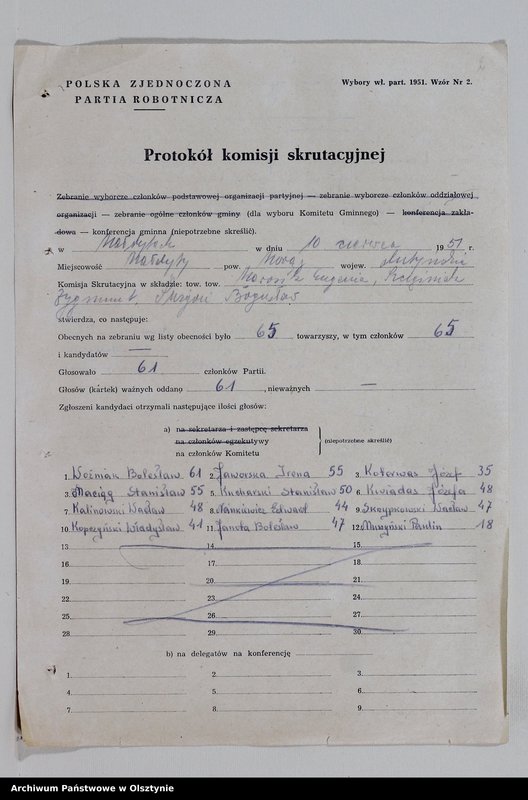 POLSKA ZJEDNOCZONA
PARTIA ROBOTNICZA
Wybory wł. part. 1951. Wzór Nr 2.
Protokół komisji skrutacyjnej
Zebranie wyborcze członków podstawowej organizacji partyjnej — zebranie wyborcze członków oddziałowej
organizacji — zebranie ogólne członków gminy (dla wyboru Komitetu Gminnego) — konferencja zakła-
dowa — konferencja gminna (niepotrzebne skreślić).
w Małdytach w dniu 10 czerwca 1951 r.
Miejscowość Małdyty pow. Morąg wojew. olsztyński
Komisja Skrutacyjna w składzie: tow. tow. Eugenia,
Zygmunt, Bogusław
stwierdza, co następuje:
Obecnych na zebraniu wg listy obecności było 65 towarzyszy, w tym członków 65
i kandydatów —
Głosowało 61 członków Partii.
Głosów (kartek) ważnych oddano 61, nieważnych —
Zgłoszeni kandydaci otrzymali następujące ilości głosów:
a) na sekretarza i zastępcę sekretarza
na członków egzekutywy (niepotrzebne skreślić)
na członków Komitetu
1. Woźniak Bolesław 61 2. Jaworska Irena 55 3. Kolerwas Józef 35
3. Maciąg Stanisław 55 5. Kucharski Stanisław 50 6. Kwiadas Józefa 48
7. Kalinowski Wacław 48 8. Nankiewicz Edward 44 9. Skrypkowski Wacław 47
10. Kopczyński Władysław 41 11. Janota Bolesław 47 12. Muszyński Paulin 18
13. 14. 15.
16. 17. 18.
19. 20. 21.
22. 23. 24.
25. 26. 27.
28. 29. 30.
b) na delegatów na konferencję
1. 2. 3.
4. 5. 6.
7. 8. 9.
Archiwum Państwowe w Olsztynie